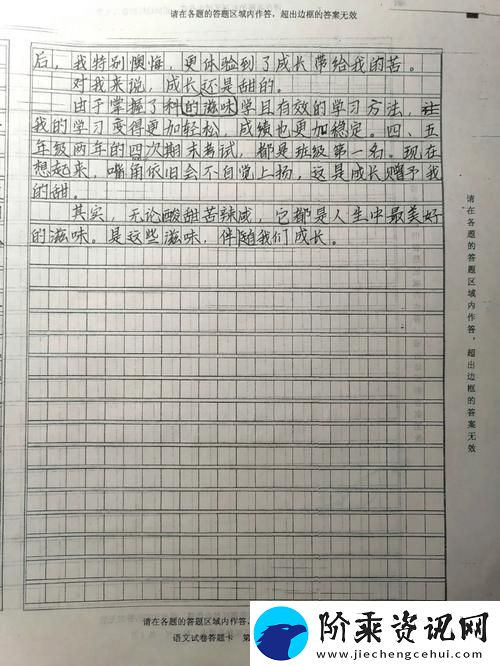 请在各题的答题区域内作答，超出边框的答案无效
后，我特别懊悔，更体验到了成长带给我的苦。
对我来说，成长还是甜的。
由于掌握了科的滋味学且有效的学习方法，让
我的学习变得更加轻松，成绩也更加稳定。四、五
年级两年的四次期末考试，都是班级第一名。现在
想起来，嘴角依旧会不自觉上扬，这是成长赠予我
的甜。
其实，无论酸甜苦辣咸，它都是人生中最美好
的滋味。是这些滋味，伴随我们成长。
请在各题的答题区域内作答，超出边框的答案无效
请在各题的答题区域内作答，
语文试卷答题卡 第
阶乘资讯网
www.jiechengcehui.com